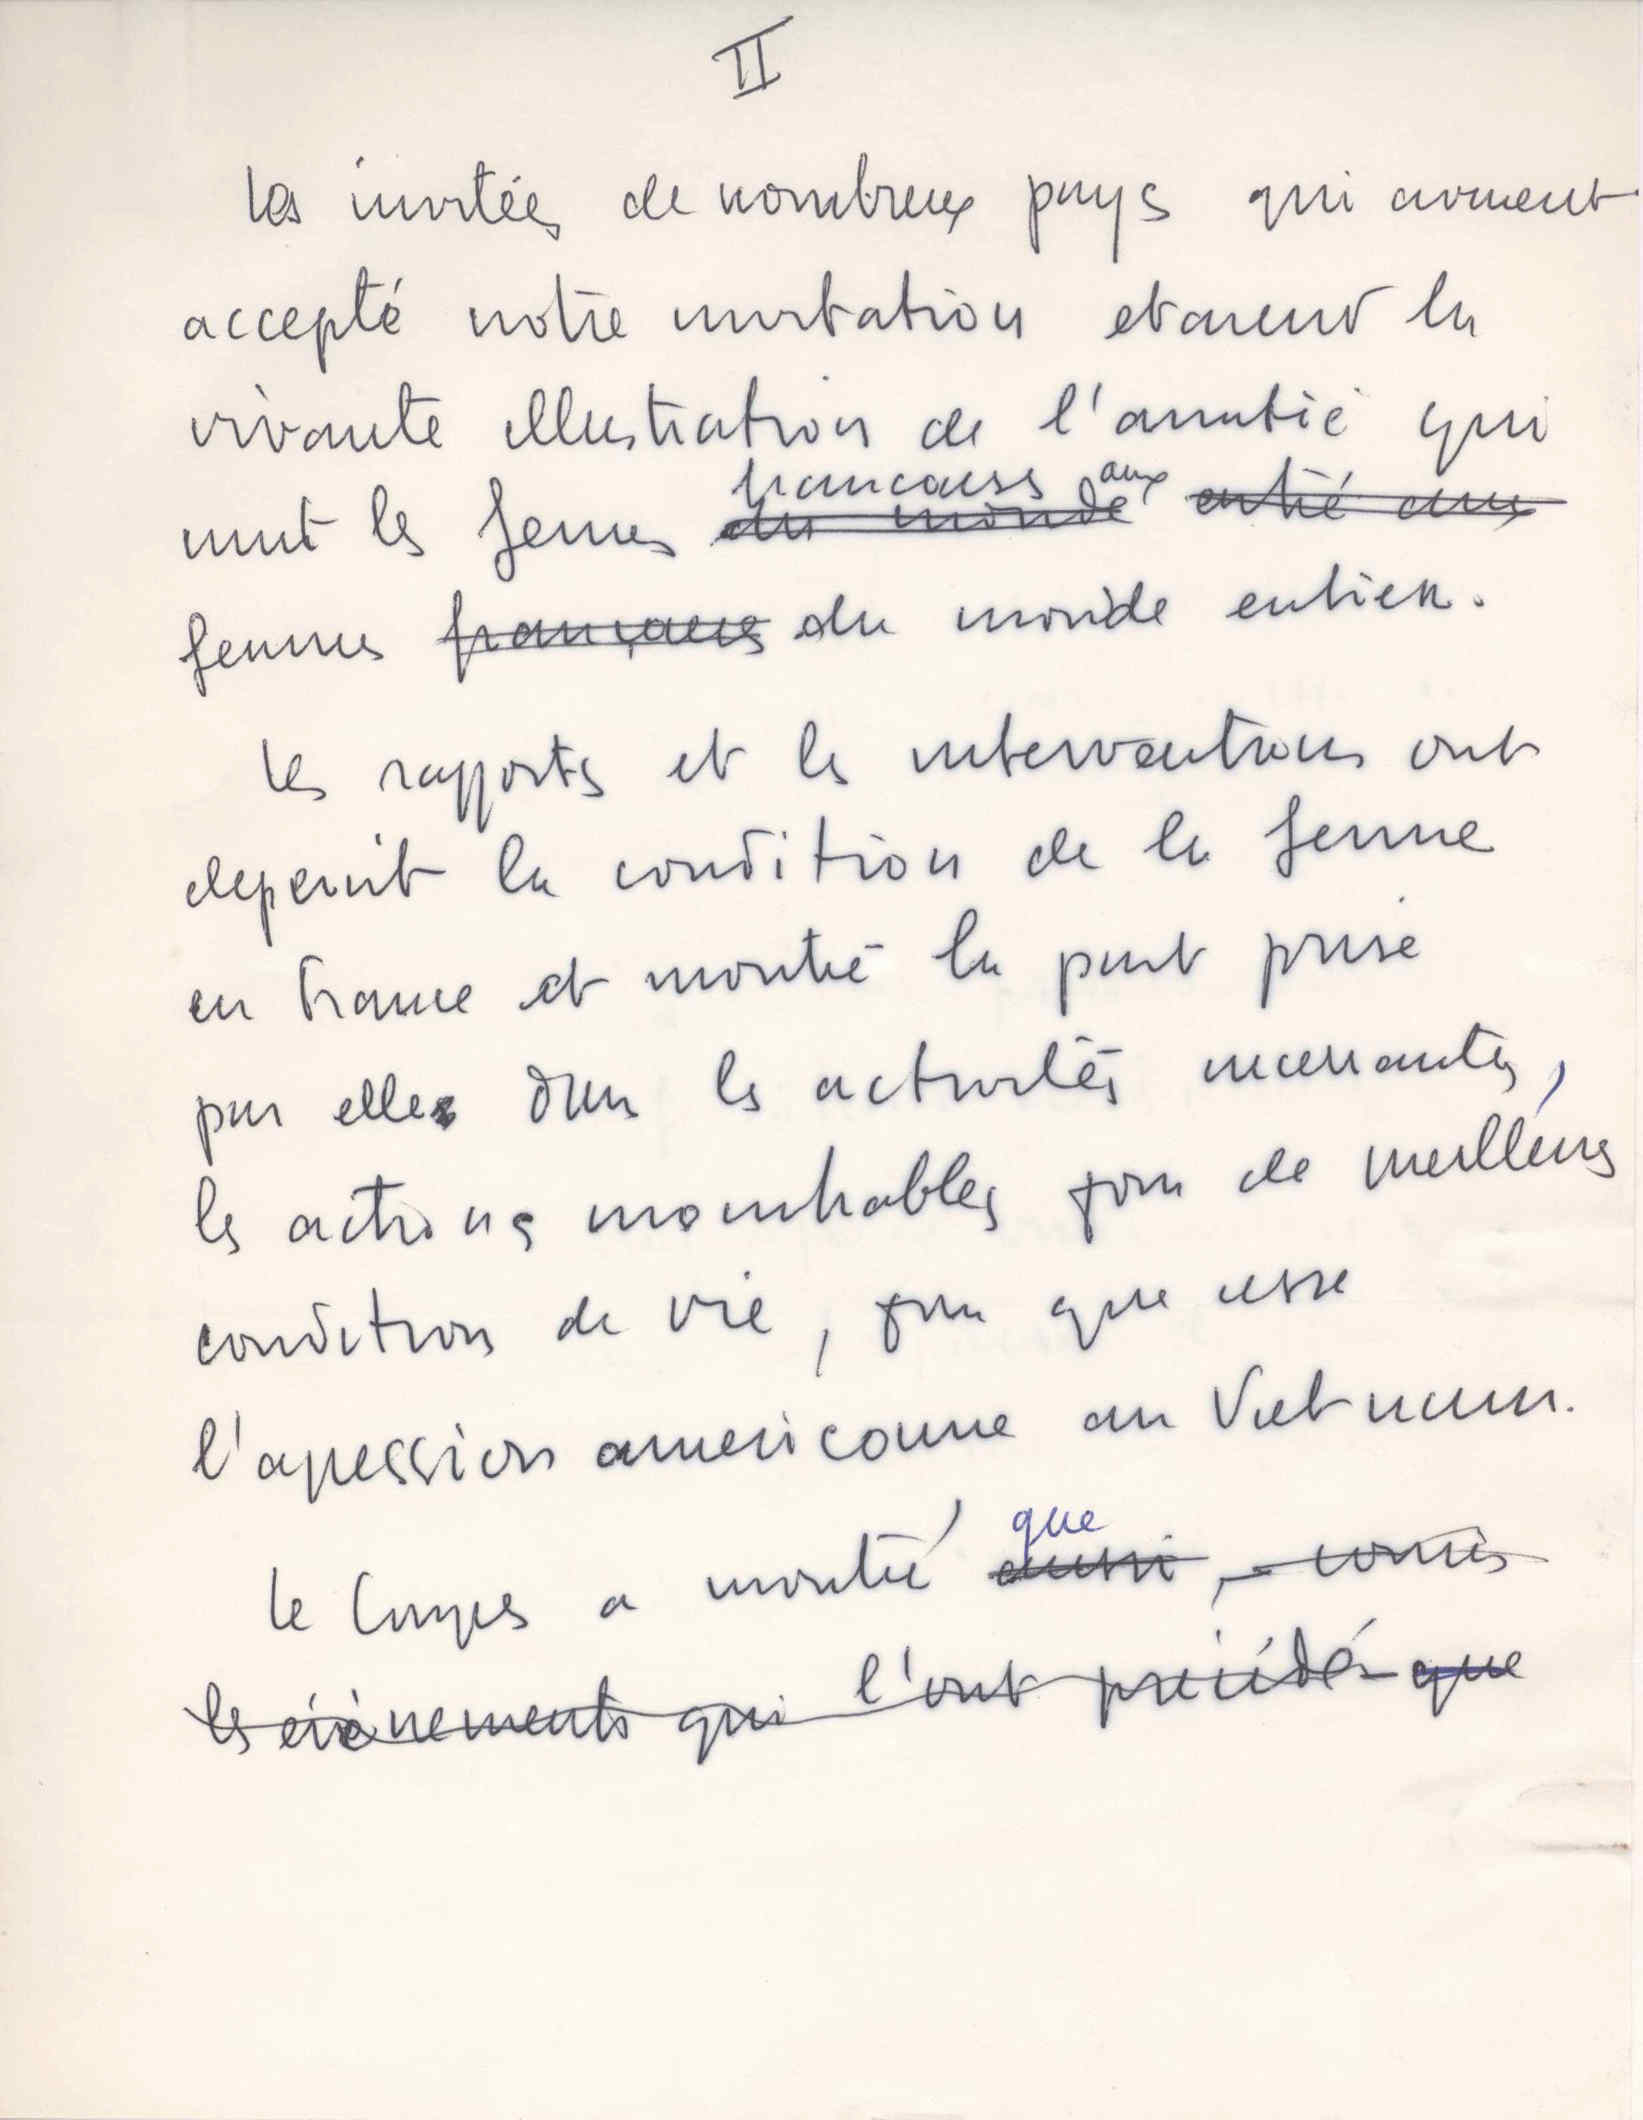 II
Les invitées de nombreux pays qui avaient
accepté notre invitation etaient la
vivante illustration de l'amitié qui
francaises aux
unit les femmes du monde entié aux
femmes françaises du monde entier.
Les rapports et les interventions ont
depeint la condition de la femme
en France et montré la part prise
par elles dans les activités incessantes,
les actions innombrables pour de meilleurs
condition de vie, pour que cesse
l'agression americaine au Vietnam.
que
Le Congrès a montré aussi, - comme
les évènements qui l'ont précédé - que